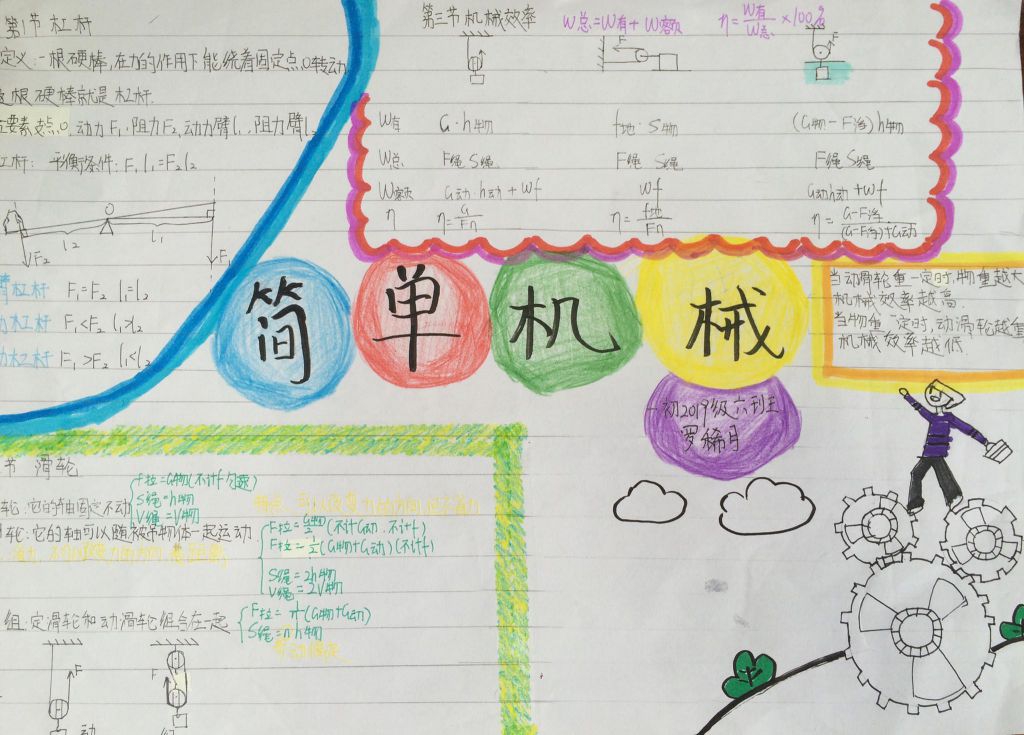 第1节 杠杆
定义:一根硬棒,在力的作用下能绕着固定点O转动
根硬棒就是杠杆.
要素:支点O,动力F₁,阻力F₂,动力臂l₁,阻力臂l₂
杠杆:平衡条件:F₁l₁=F₂l₂
O
l₂
l₁
F₂
F₁
臂杠杆 F₁=F₂ l₁=l₂
力杠杆 F₁<F₂ l₁>l₂
力杠杆 F₁>F₂ l₁<l₂
第三节 机械效率 W总=W有+W额 η=W有/W总×100%
F
F
F
W有 G·h物 f地·S物 (G物-F浮)h物
W总 F绳S绳 F绳S绳 F绳S绳
W额 G动·h动+Wf Wf G动h动+Wf
η η=G/Fn η=f地/Fn η=G-F浮/(G-F浮)+G动
简单机械
一初2019级六班
罗稀月
当动滑轮重一定时,物重越大
机械效率越高.
当物重一定时,动滑轮越重
机械效率越低.
节 滑轮
轮:它的轴固定不动
F拉=G物(不计f 匀速)
S绳=h物
V绳=V物
轮:它的轴可以随被吊物体一起运动
F拉=G物/2(不计G动,不计f)
F拉=1/2(G物+G动)(不计f)
S绳=2h物
V绳=2V物
组:定滑轮和动滑轮组合在一起
F拉=1/n(G物+G动)
S绳=nh物
F
F
动